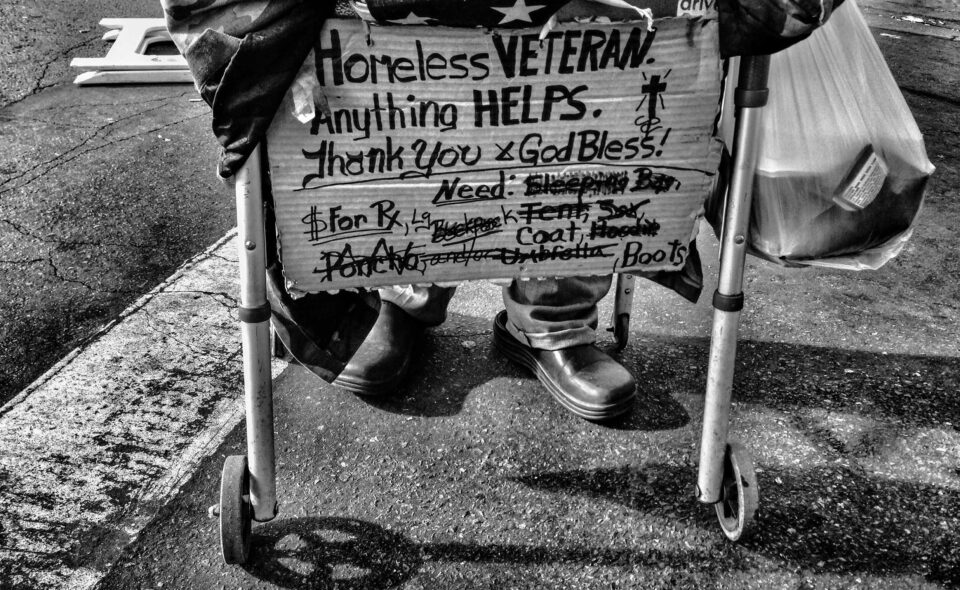 driv
Homeless VETERAN.
Anything HELPS.
Thank You & God Bless!
Need: Sleeping Bag
$ For Rx, Lg Backpack Tent, Sox,
Coat, Hoodie
Poncho, and/or Umbrella, Boots